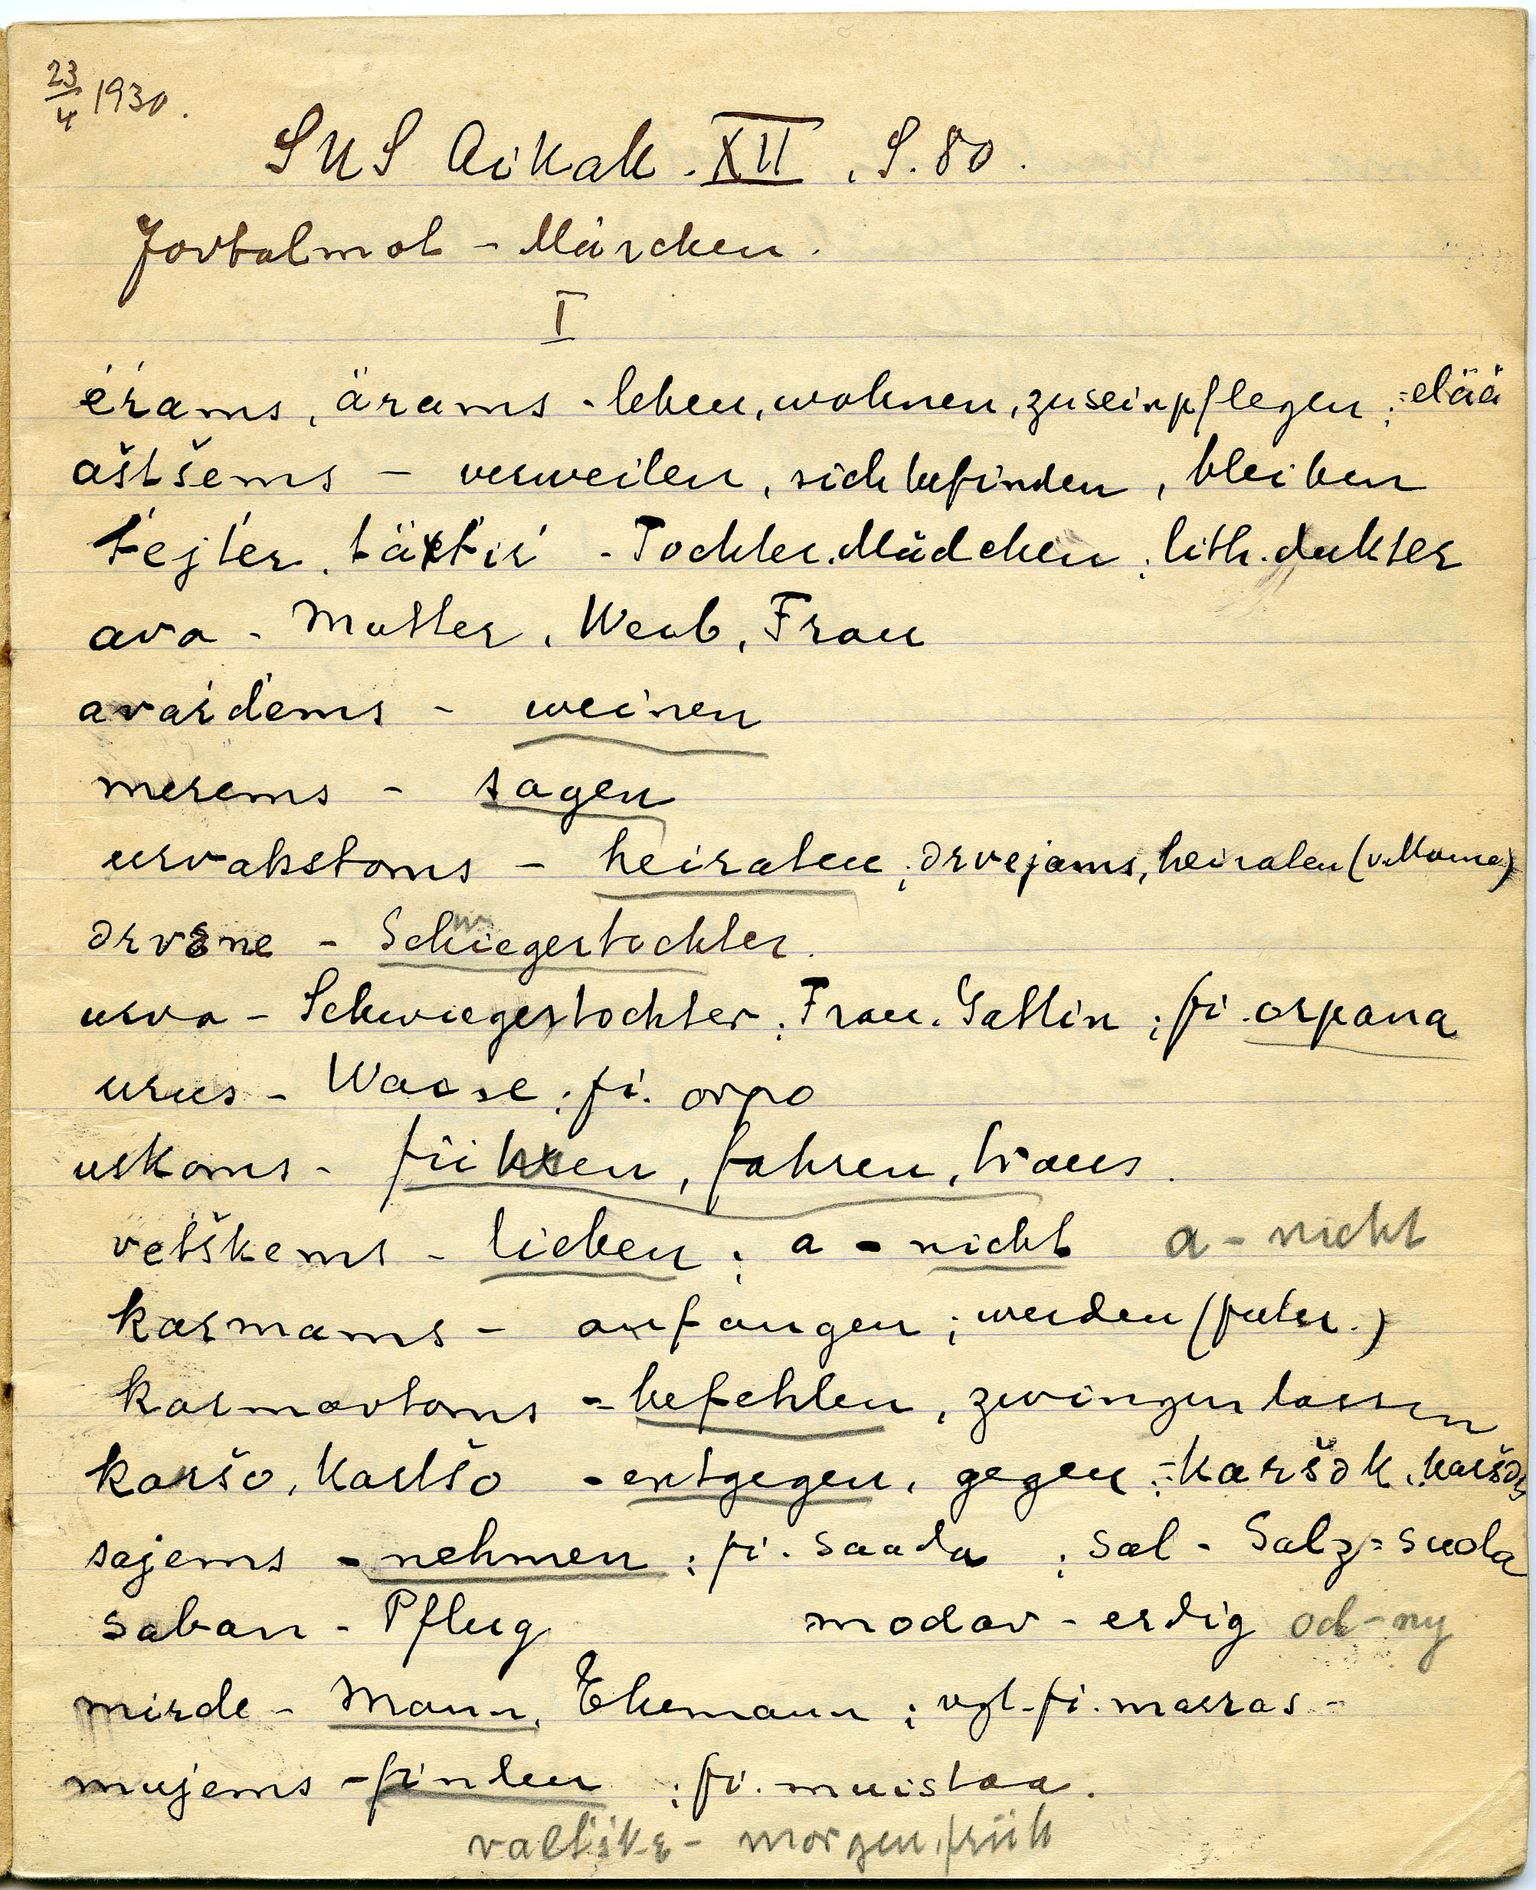 23/4 1930.
SUS Aikak. XII, S. 80.
Jovtalmot - Märchen.
I
ėŕams, ärams - leben, wohnen, zu sein pflegen; = elää
aštšems - verweilen, sich befinden, bleiben
t́ejt́er, t́äxt́iŕ - Tochter, Mädchen; lith. dukter
ava - Mutter, Weib, Frau
avaŕd́ems - weinen
merems - sagen
urvakstoms - heiraten; ərvejams, heiraten (v. Manne)
ərvəne - Schwiegertochter.
urva - Schwiegertochter; Frau, Gattin; fi. orpana
urus - Waise; fi. orpo
uskoms - führen, fahren, trans.
vetškems - lieben; a - nicht a - nicht
karmams - anfangen; werden (futur.)
karmavtoms - befehlen, zwingen lassen
karšo, kartšo - entgegen, gegen; = karšək, karšəs
sajems - nehmen; fi. saada; sal - Salz = suola
saban - Pflug modav - erdig od-ny
mirde - Mann, Ehemann; vgl. fi. marras -
mujems - finden; fi. muistaa.
valtske - morgen, früh